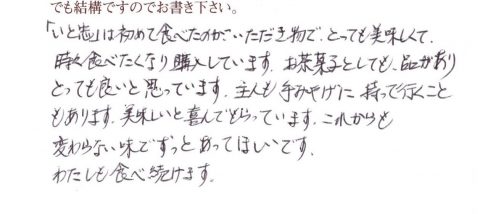 でも結構ですのでお書き下さい。
「いと志」は初めて食べたのがいただき物で、とっても美味しくて、
時々食べたくなり購入しています。お茶菓子としても、品があり
とっても良いと思っています。主人も手みやげに持って行くこと
もあります。美味しいと喜んでもらっています。これからも
変わらない味でずっとあってほしいです。
わたしも食べ続けます。